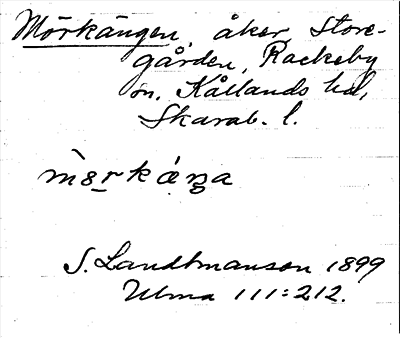 Mörkängen, åker, Store-
gården, Rackeby
sn, Kållands hd,
Skarab. l.
S. Landtmanson 1899
Ulma 111:212.